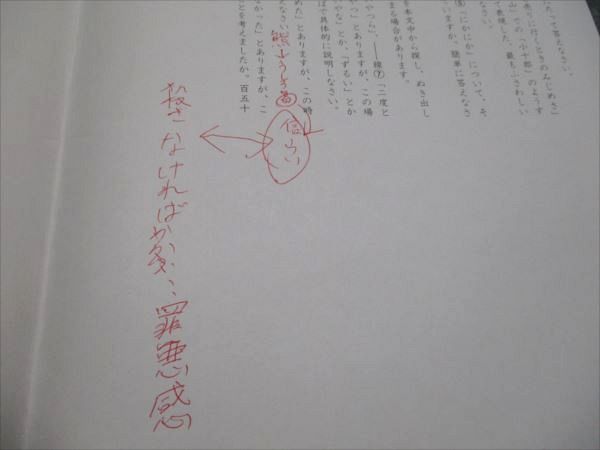 たって答えなさい。
売りに行くときのみじめさ」
山」での「小十郎」のようす
て表現した、最もふさわしい
なさい。
⑤「にかにか」について、そ
いますか。簡単に答えなさ
を本文中から探し、ぬき出し
まる場合があります。
やつら」、――線⑦「二度と
やつ」とありますが、この場
やな」とか、「ずるい」とか
ばで具体的に説明しなさい。
めた」とありますが、この時
えなさい。
かった」とありますが、こ
とを考えましたか。百五十
信らい
殺さなければ
罪悪感